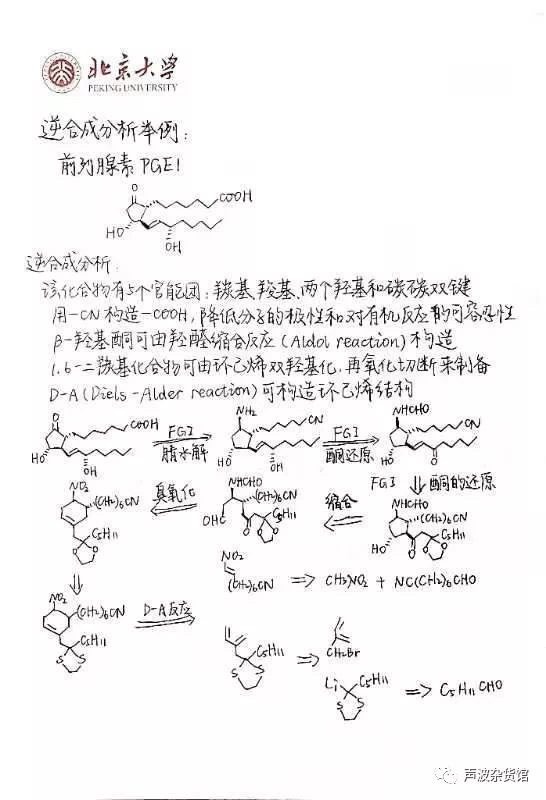 北京大学
PEKING UNIVERSITY
逆合成分析举例：
前列腺素 PGE1
O
COOH
HO
OH
逆合成分析：
该化合物有5个官能团：羰基、羧基、两个羟基和碳碳双键
用-CN构造-COOH，降低分子的极性和对有机反应的可容忍性
β-羟基酮可由羟醛缩合反应（Aldol reaction）构造
1,6-二羰基化合物可由环己烯双羟基化，再氧化切断来制备
D-A（Diels-Alder reaction）可构造环己烯结构
O COOH HO OH FGI 腈水解 NH2 CN HO OH FGI 酮还原 NHCHO CN HO O
FGI 酮的还原
NO2 (CH2)6CN C5H11 O O 臭氧化 NHCHO (CH2)6CN OHC O C5H11 O O 缩合 NHCHO (CH2)6CN HO O C5H11 O O
NO2 (CH2)6CN ⇒ CH3NO2 + NC(CH2)6CHO
NO2 (CH2)6CN C5H11 S S D-A反应 C5H11 S S ⇒ CH2Br
Li C5H11 S S ⇒ C5H11CHO
声波杂货馆